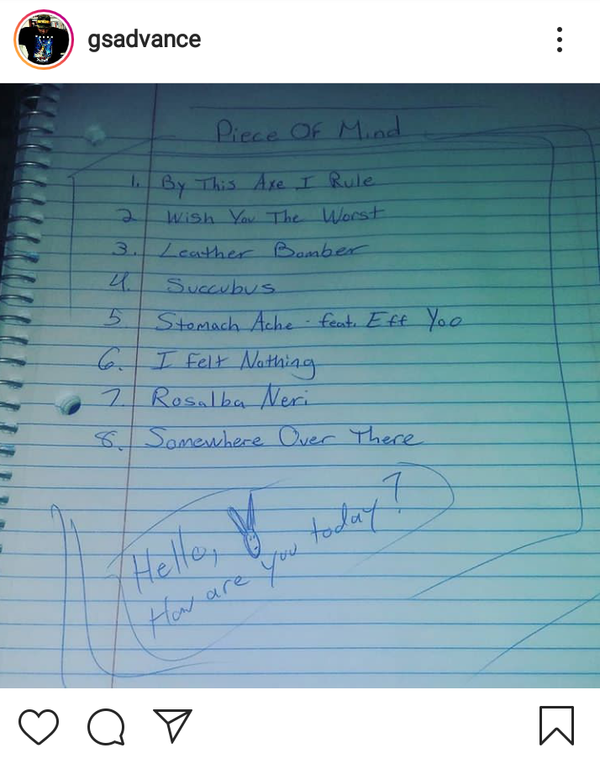 gsadvance
Piece Of Mind
1. By This Axe I Rule
2 Wish You The Worst
3. Leather Bomber
4. Succubus
5. Stomach Ache - feat. Eff Yoo
6. I Felt Nothing
7. Rosalba Neri
8. Somewhere Over There
Hello,
How are you today?